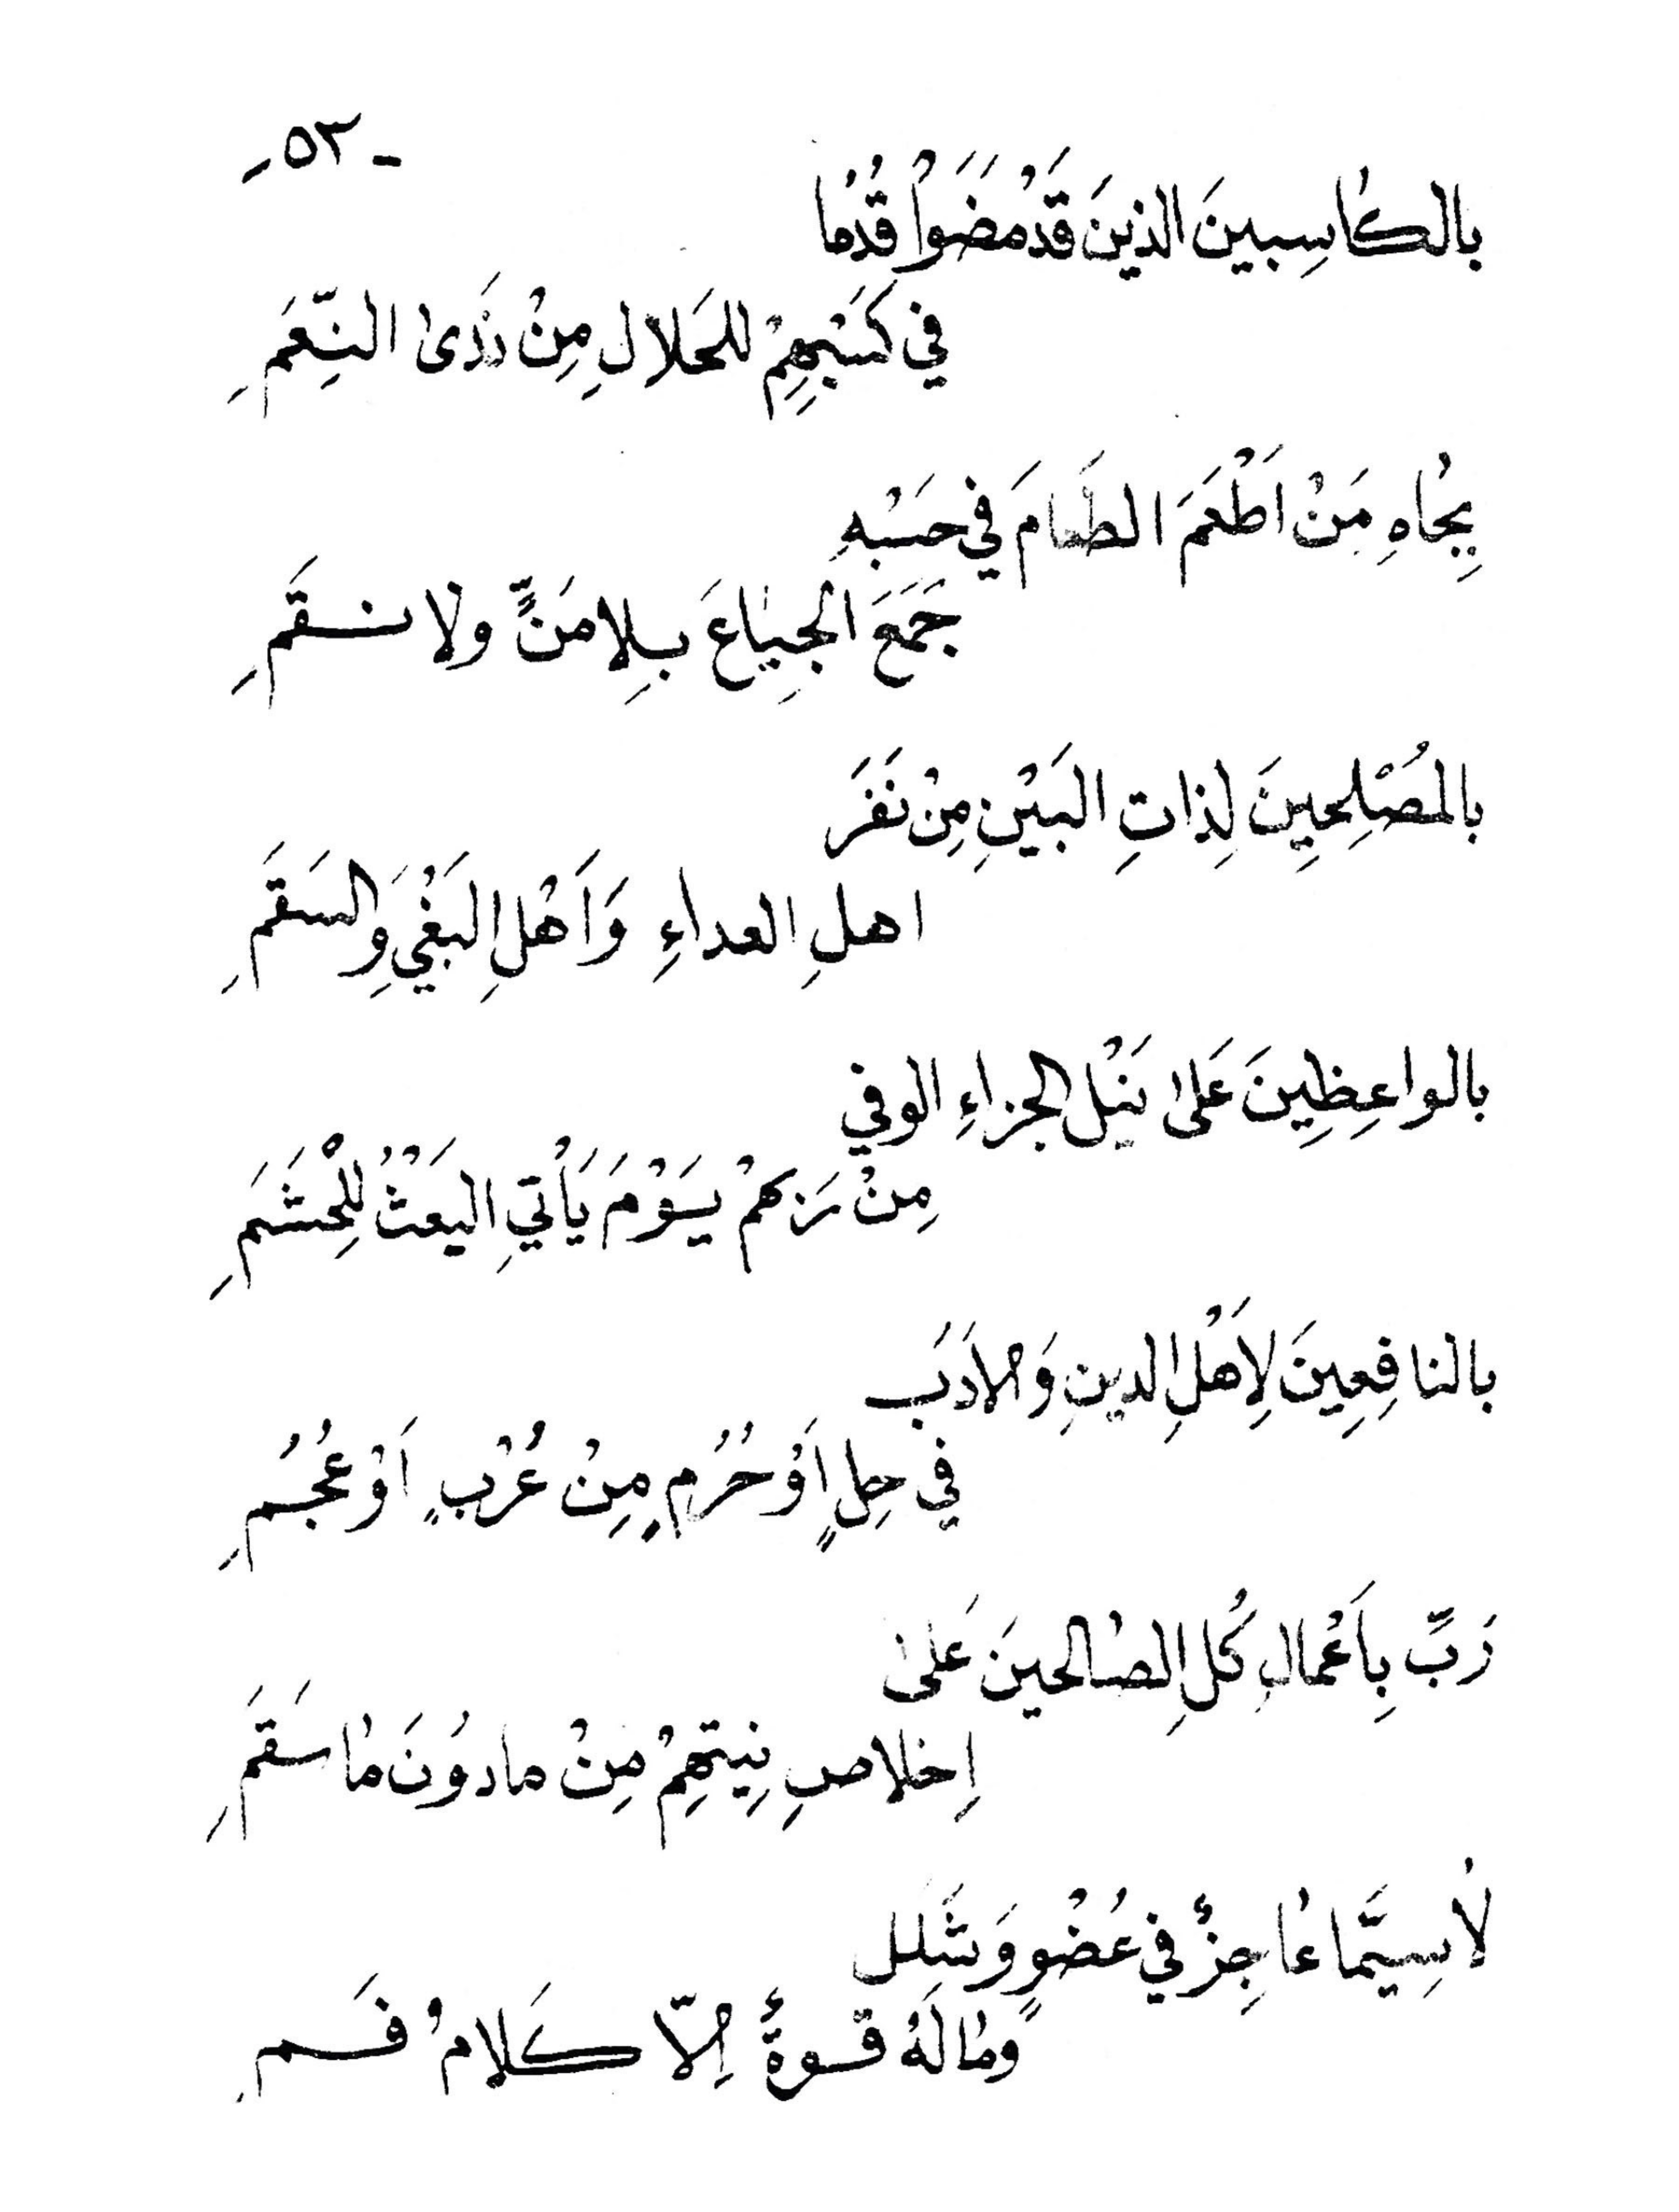 - ٥٣ -
بالكاسِبينَ الذينَ قَدْ مَضَوْا قُدُمًا
في كَسْبِهِمْ للحَلالِ مِنْ ذَرَىٰ النِّعَمِ
بِجاهِ مَنْ اَطْعَمَ الطَعامَ في حَسْبِهِ
جَمَعَ الجِياعَ بِلا مَنٍّ ولا نقَمِ
بالمُصْلِحِينَ لِذاتِ البَيْنِ مِنْ نَفَرَ
اهلِ العداءِ وَاَهْلِ البَغْيِ وَالسَقَمِ
بالواعِظِينَ عَلىٰ نَيْلِ الجزاءِ الوفي
مِنْ رَبهمْ يَوْمَ يَأْتِي البَعْثُ لِلْحَشَمِ
بالنافِعِينَ لِاَهْلِ الدينِ وَالادَبَ
في حِلٍ اَوْ حُرُمٍ مِنْ عُرْبٍ اَوْ عُجُمِ
رَبِّ بِاَعْمالِ كُلِ الصالحينَ عَلىٰ
اِخلاصِ نِيتهِمْ مِنْ مادوُنَ ما سَقَمِ
لاٰسِيَّما عاجِزٌ في عُضْوٍ وَشَلل
وما لَهُ قوةٌ اِلاّ كَلامُ فَمِ